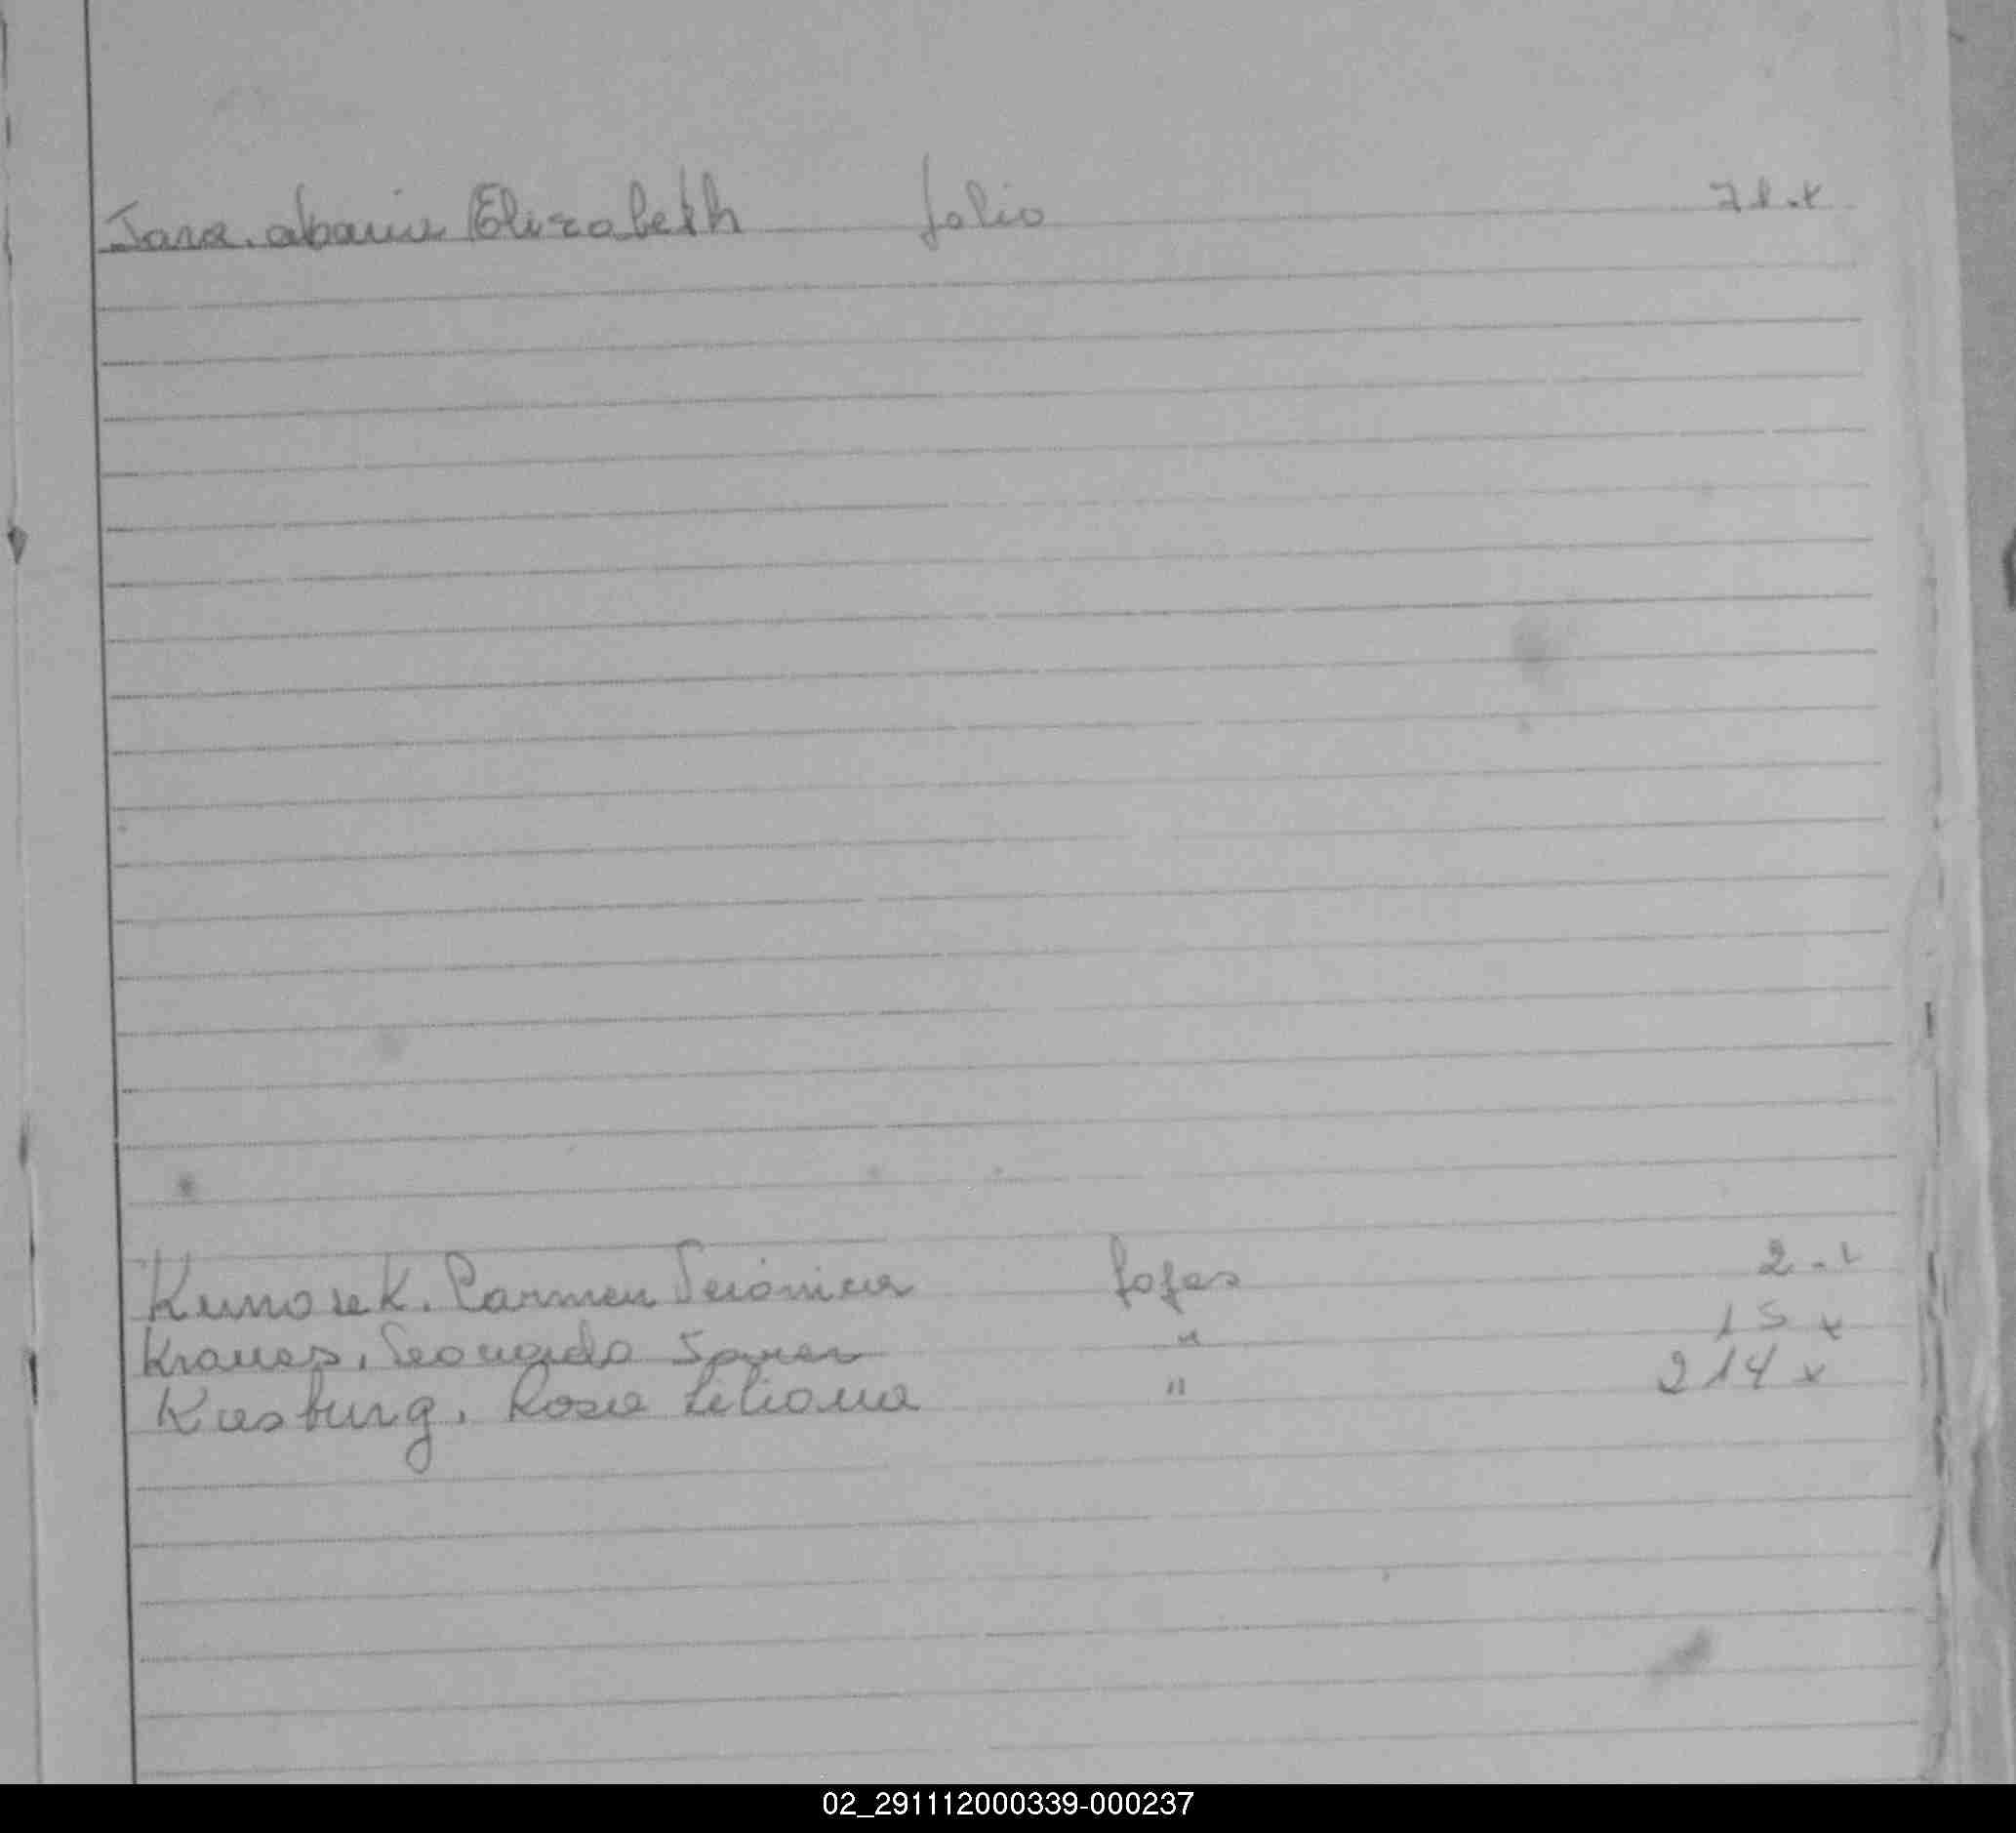 Jara, Maria Elizabeth folio 71.x
Kunosek. Carmen Verónica fojas 2-
Kraues, Leonardo Javier " 15 x
Kiesburg. Rosa Liliana " 214 x
02_291112000339-000237